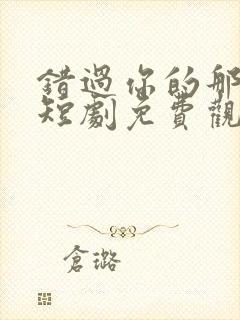 錯過你的那
短劇免費觀
倉璐